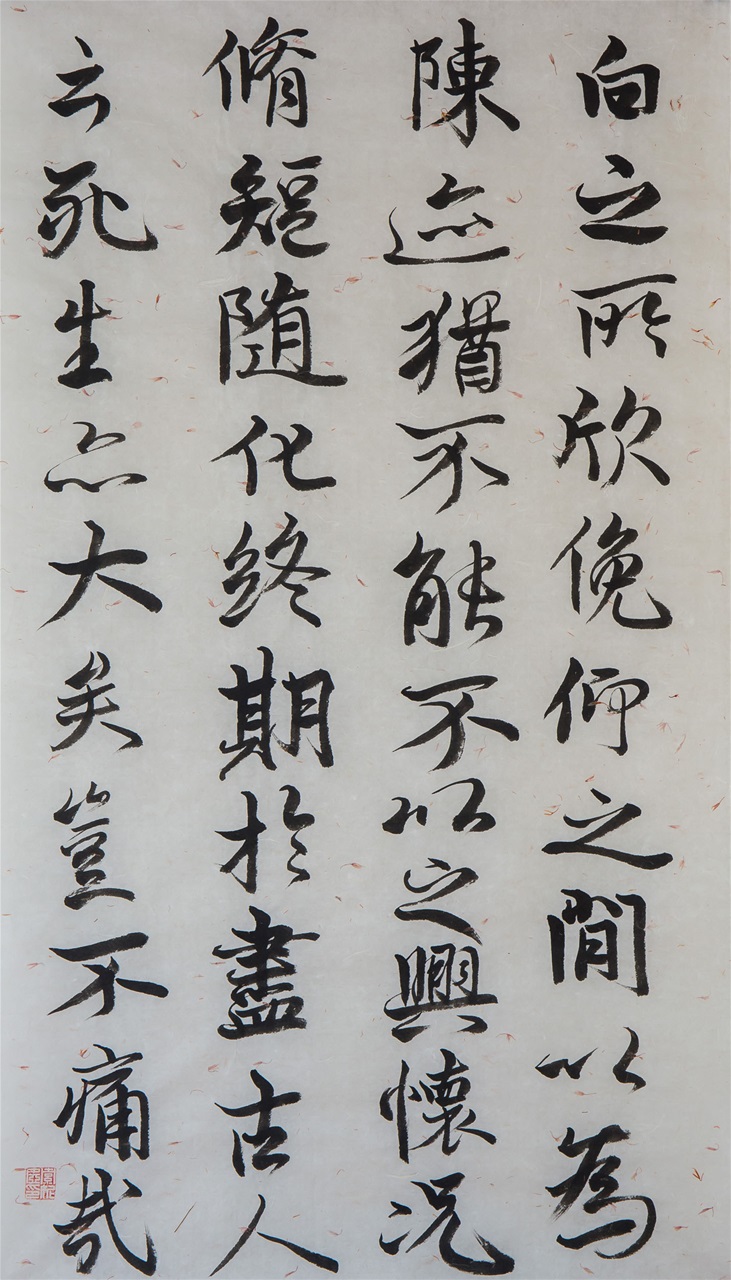 向之所欣俛仰之間以為
陳迹猶不能不以之興懷况
脩短随化終期於盡古人
云死生亦大矣豈不痛哉